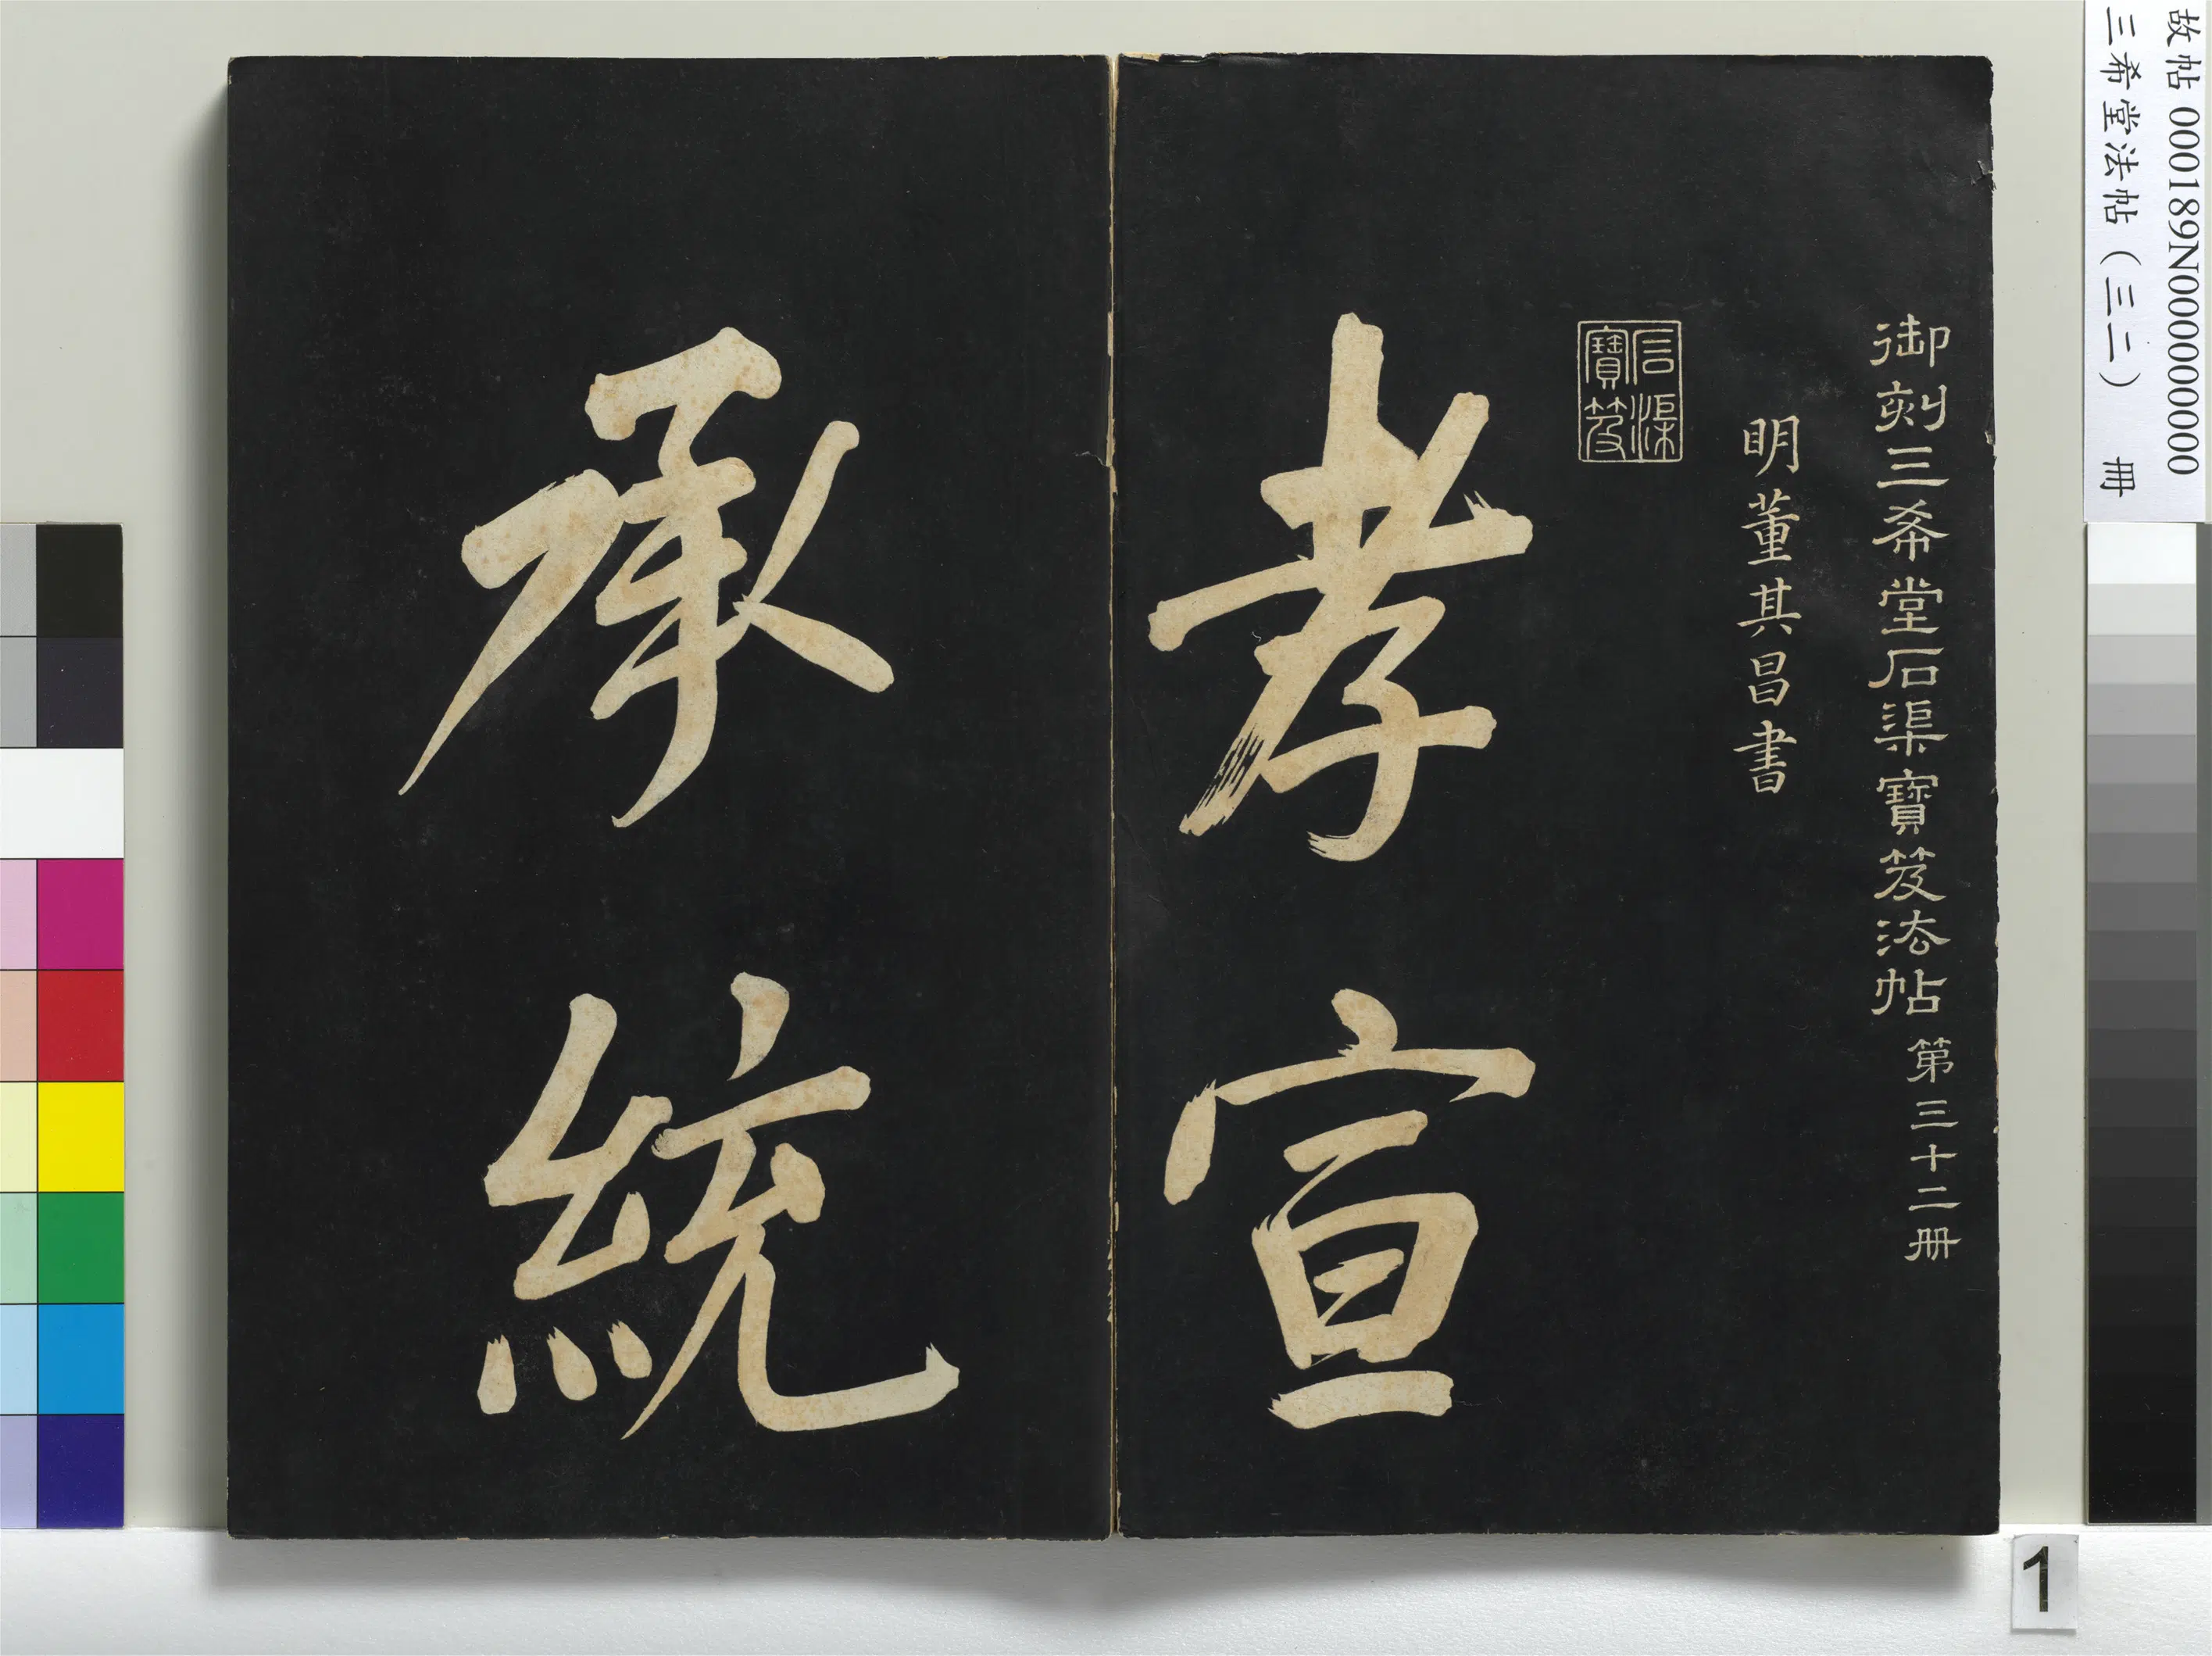 故帖 000189N000000000
三希堂法帖（三二） 冊
御刻三希堂石渠寶笈法帖 第三十二册
明董其昌書
石渠
寶笈
孝宣
承統
1